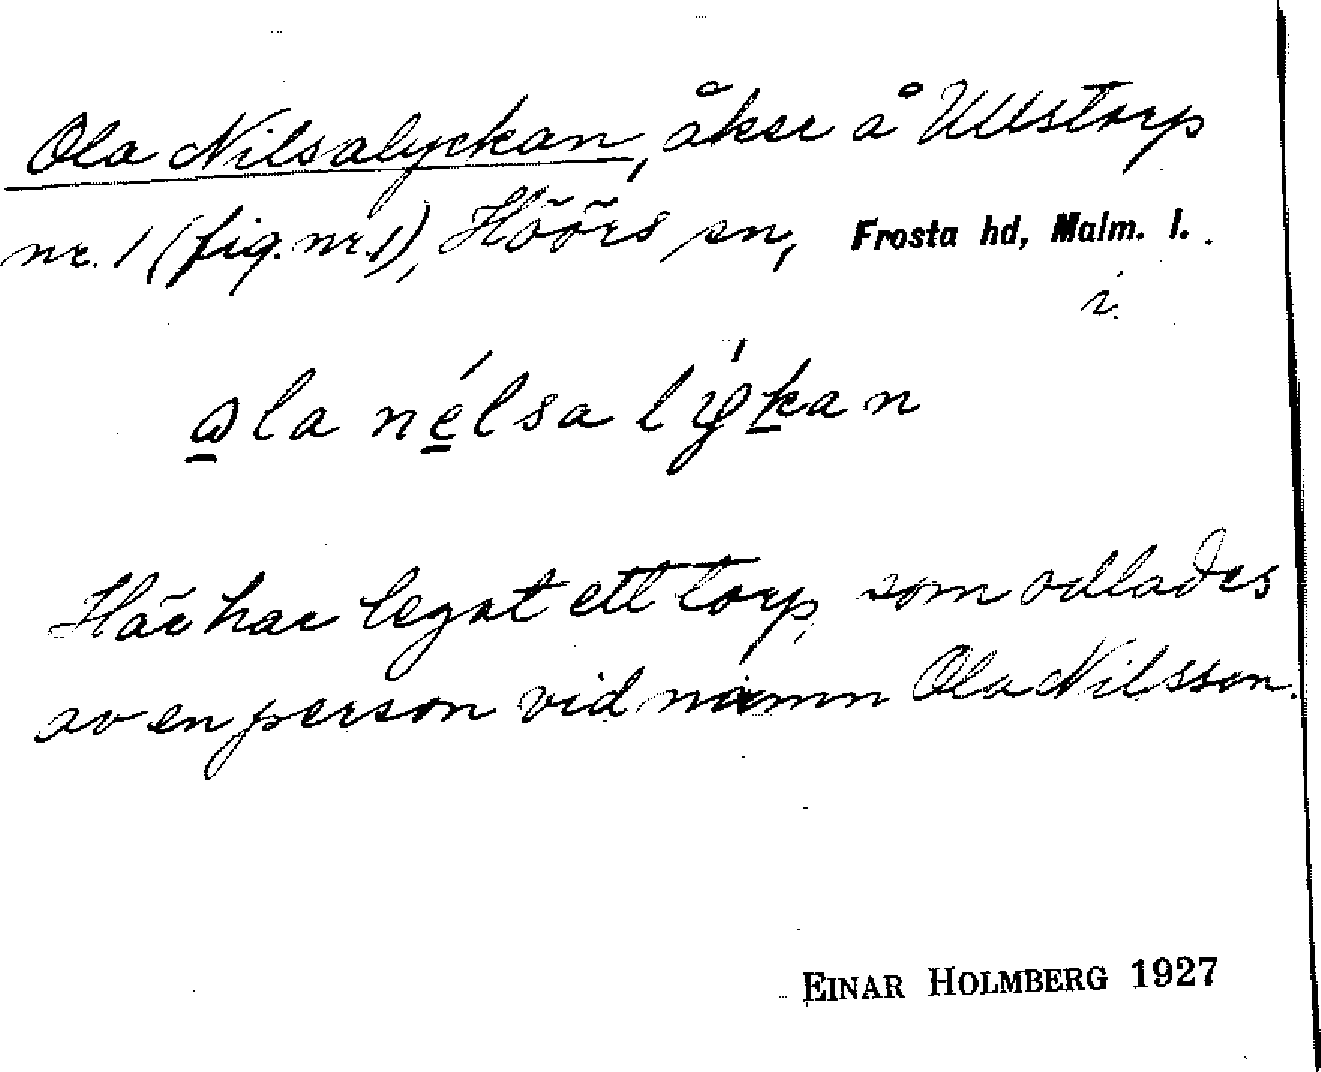 Ola Nilsalyckan, åker å Ullstorp
nr. 1 (fig. nr. 1), Höörs sn, Frosta hd, Malm. l.
i.
ola nélsa lýkan
Här har legat ett torp, som odlades
av en person vid namn Ola Nilsson.
EINAR HOLMBERG 1927